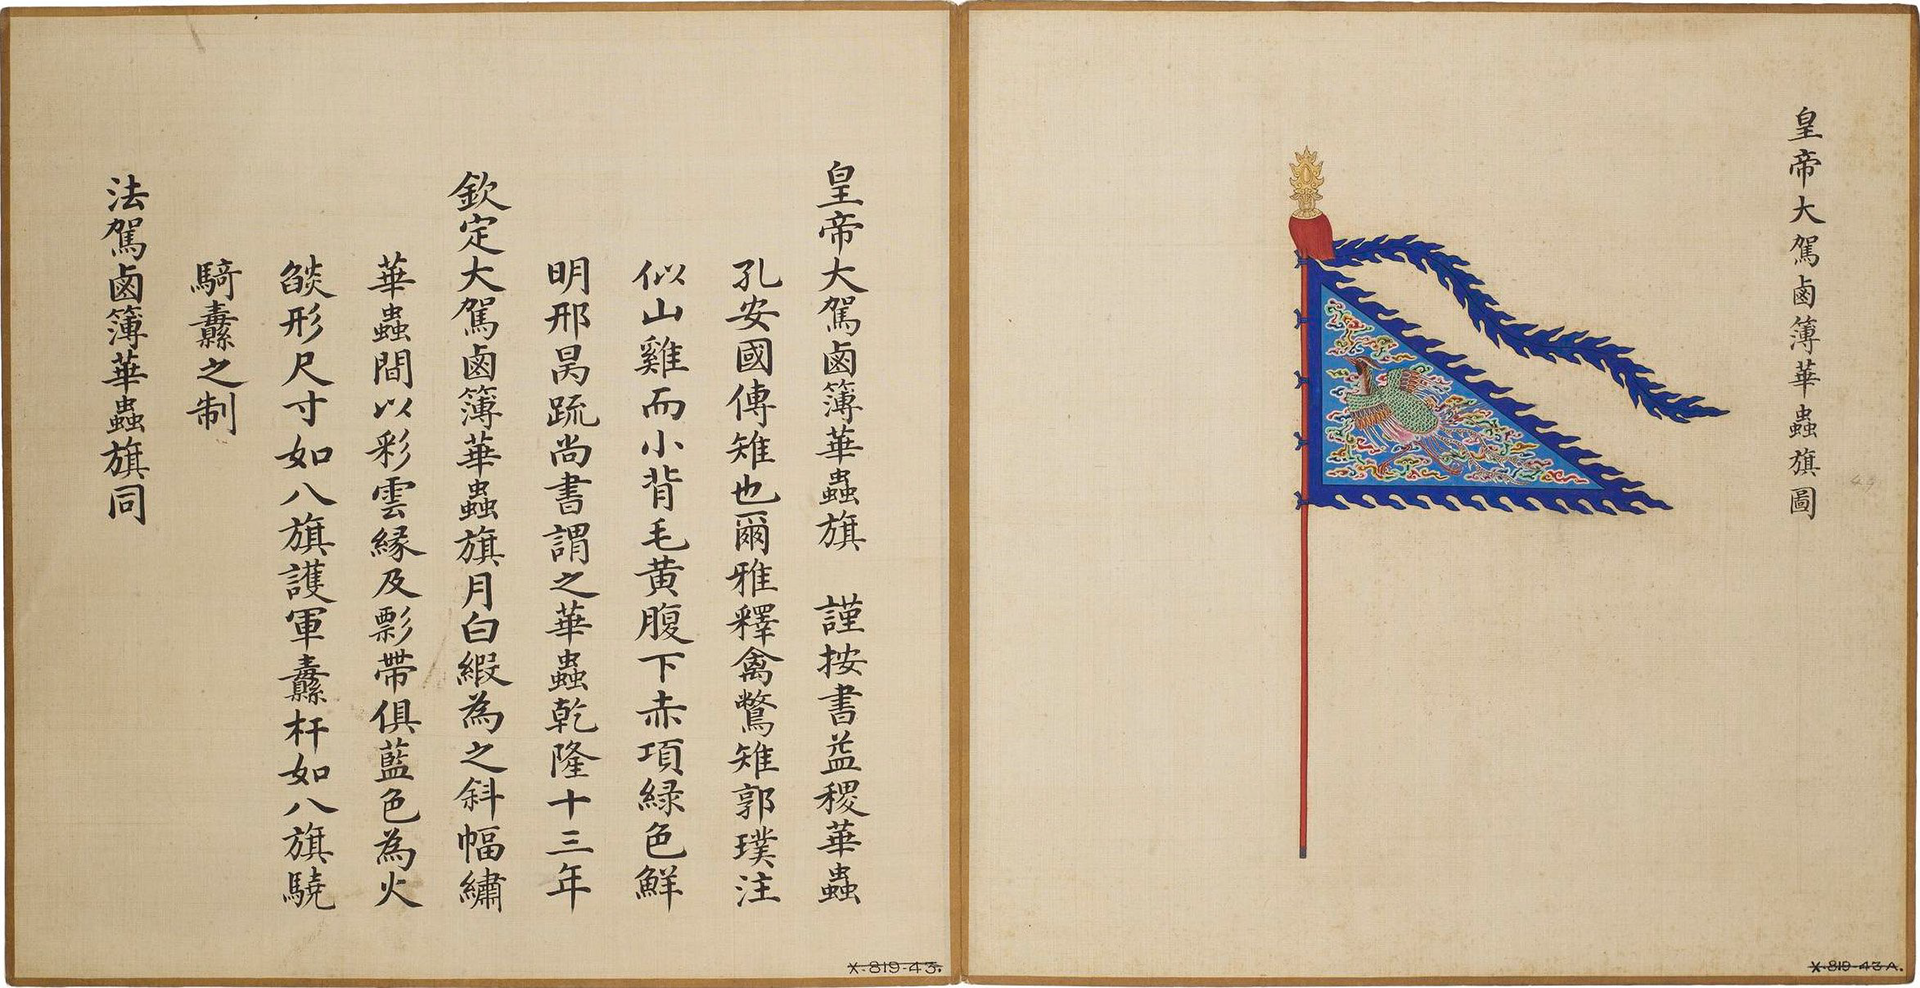 皇帝大駕鹵簿華蟲旗圖
皇帝大駕鹵簿華蟲旗　謹按書益稷華蟲
孔安國傳雉也爾雅釋禽鷩雉郭璞注
似山雞而小背毛黃腹下赤項緑色鮮
明邢昺疏尚書謂之華蟲乾隆十三年
欽定大駕鹵簿華蟲旗月白緞為之斜幅繡
華蟲間以彩雲緣及彯帶俱藍色為火
燄形尺寸如八旗護軍纛杆如八旗驍
騎纛之制
法駕鹵簿華蟲旗同
X.819-43.
X.819-43A.